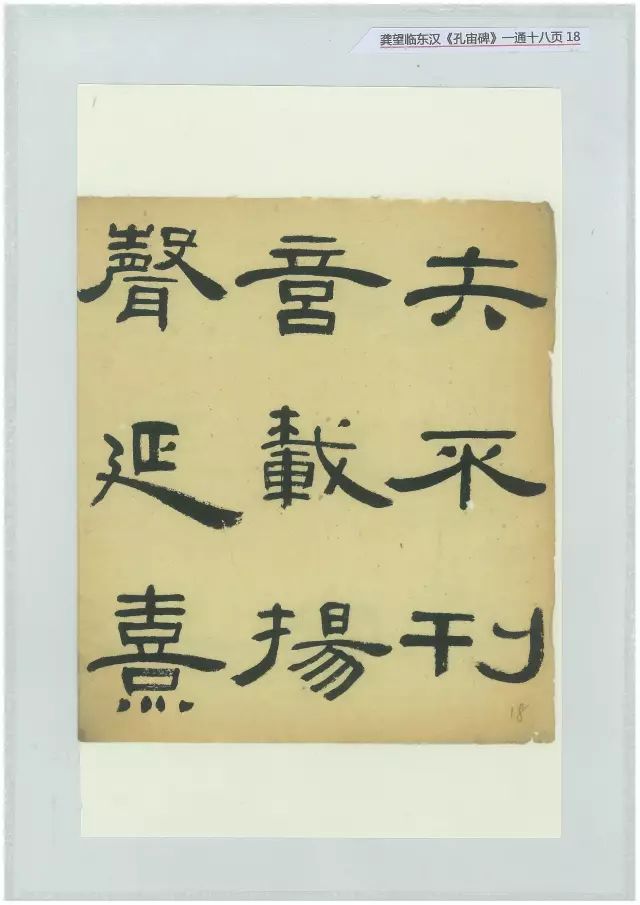 龚望临东汉《孔宙碑》一通十八页 18
矢不刊
意載揚
聲延熹
18